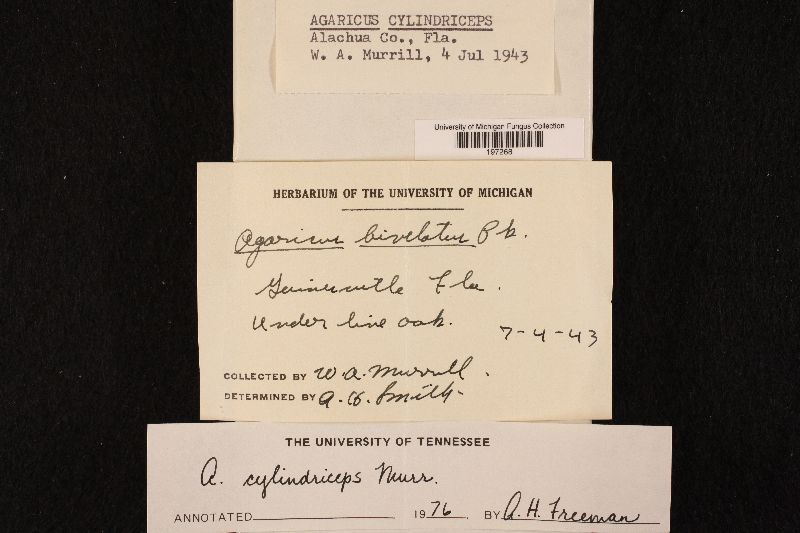 AGARICUS CYLINDRICEPS
Alachua Co., Fla.
W. A. Murrill, 4 Jul 1943
University of Michigan Fungus Collection
197268
HERBARIUM OF THE UNIVERSITY OF MICHIGAN
Agaricus bivelatus Pk.
Gainesville Fla.
Under live oak.
7-4-43
COLLECTED BY W.A. Murrill.
DETERMINED BY A.H. Smith.
THE UNIVERSITY OF TENNESSEE
A. cylindriceps Murr.
ANNOTATED 1976 BY A.H. Freeman